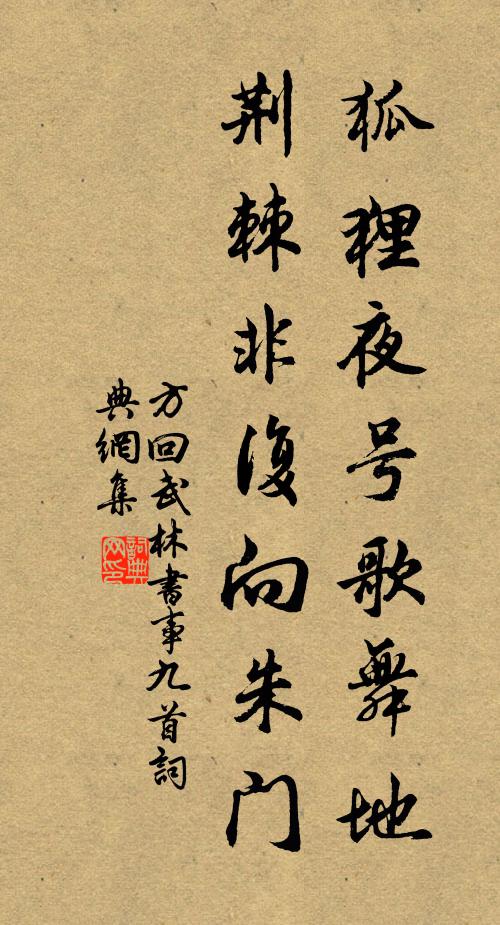 狐狸夜号歌舞地
荆棘非復向朱门
方回武林書事九首詞
典網集
詞典
网印